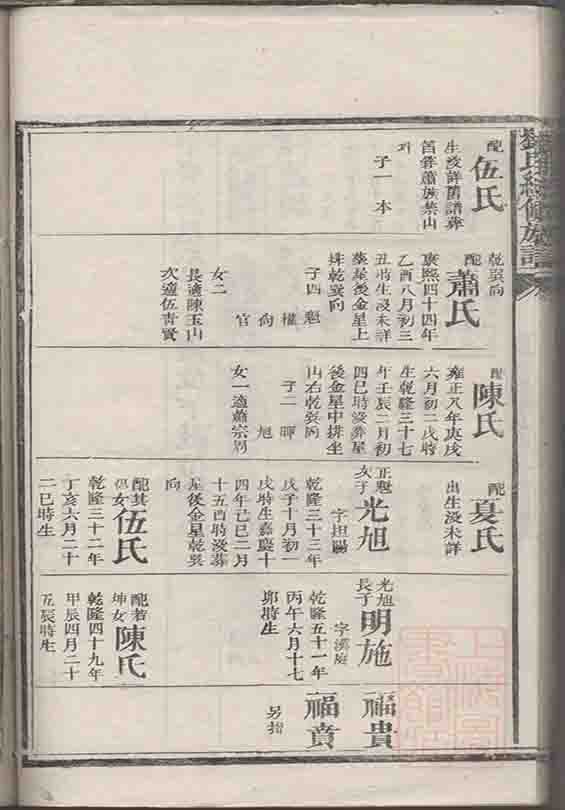 劉氏續修族譜
配
伍氏
生沒詳舊譜葬
蕭族禁山
子一本
乾巽向
配
蕭氏
康熙四十四年
乙酉八月初三
丑時生沒未詳
葬屋後金星上
乾巽向
子四魁
權
尚
官
女二
長適陳玉山
次適伍青賢
配
陳氏
雍正八年庚戌
六月初二戌時
生乾隆三十七
年壬辰二月初
四巳時沒葬屋
後金星中排坐
山右乾巽向
子二暉
旭
女一適蕭宗
配
夏氏
出生沒未詳
正魁
次子
光旭
字坦陽
乾隆三十三年
戊子十月初一
戌時生嘉慶十
四年己巳二月
十五酉時沒葬
屋後金星乾巽
向
配其
女
伍氏
乾隆三十二年
丁亥六月二十
二巳時生
光旭
長子
明施
字漢庭
乾隆五十一年
丙午六月十七
卯時生
配若
坤女
陳氏
乾隆四十九年
甲辰四月二十
五辰時生
福貴
福賁
另